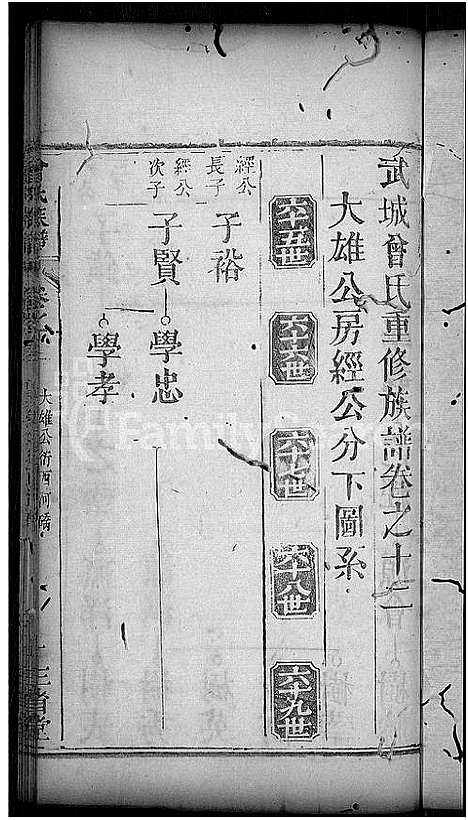 武城曾氏重修族譜卷之十二
大雄公房經公分下圖系
六十五世
六十六世
六十七世
六十八世
六十九世
經公長子
子裕
經公次子
子賢
學忠
學孝
大雄公衍西河
三省堂
FamilySearch